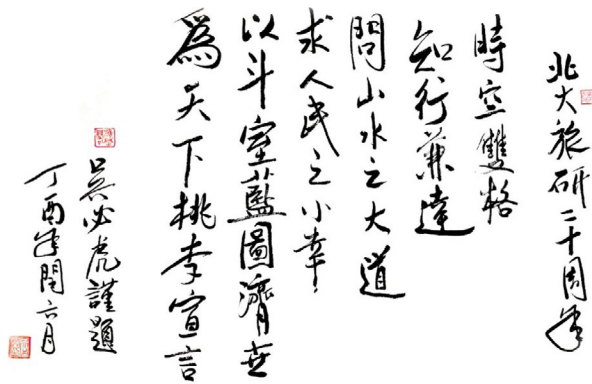 北大旅研二十周年
時空雙格
知行兼達
問山水之大道
求人民之小幸
以斗室藍圖濟世
爲天下桃李宣言
吳必虎謹題
丁酉年閏六月